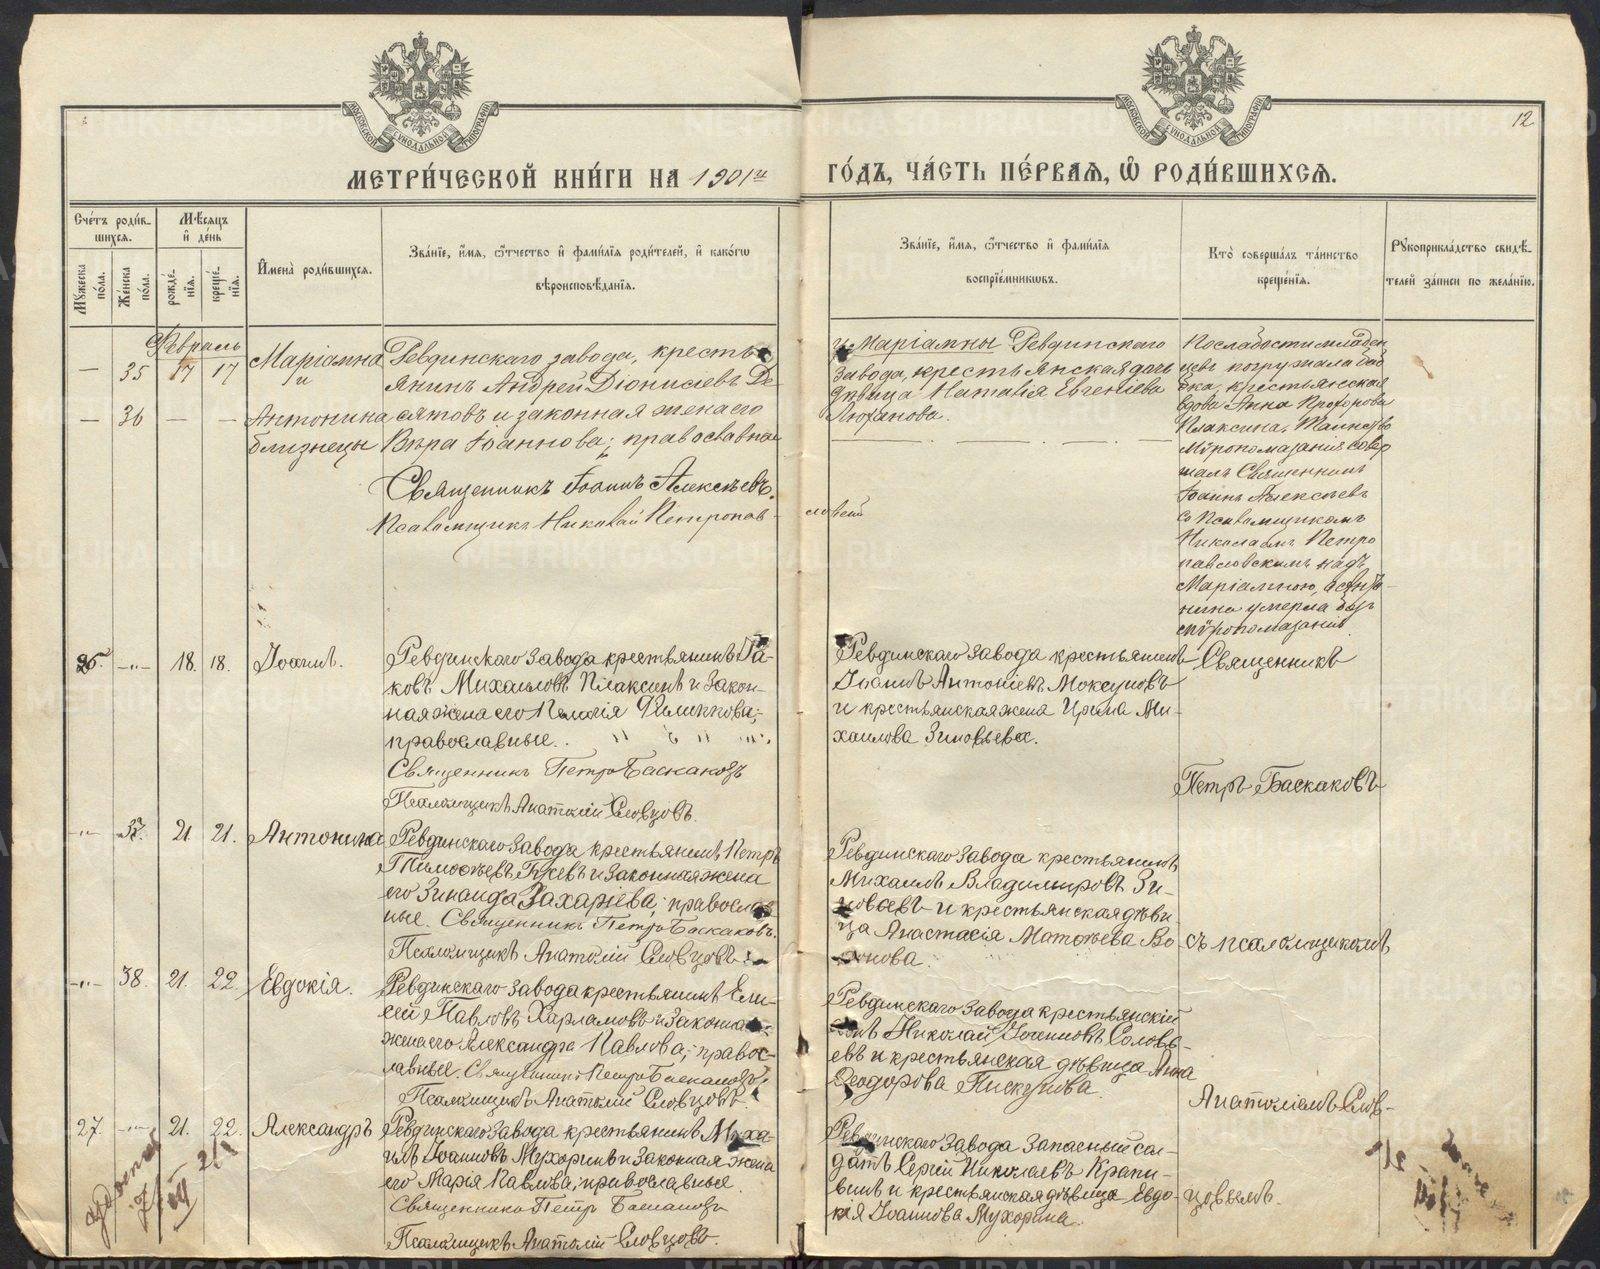 МОСКОВСКОЙ СѴНОДАЛЬНОЙ ТИПОГРАФІИ
МОСКОВСКОЙ СѴНОДАЛЬНОЙ ТИПОГРАФІИ
12
МЕТРИ́ЧЕСКОЙ КНИ́ГИ НА 1901й ГО́ДЪ, ЧА́СТЬ ПЕ́РВАѦ, Ѡ҆ РОДИ́ВШИХСѦ.
Сче́тъ роди́в-
шихся.
Мѣ́сяцъ
и҆ де́нь
Мꙋ́жеска по́ла.
Же́нска по́ла.
рожде́-
нїя.
креще́-
нїя.
И҆мена̀ роди́вшихся.
Зва́нїе, и҆́мя, ѻ҆́тчество и҆ фами́лїя роди́телей, и҆ како́гѡ
вѣроисповѣ́данїя.
Зва́нїе, и҆́мя, ѻ҆́тчество и҆ фами́лїя
воспрїе́мникѡвъ.
Кто̀ соверша́лъ та́инство
креще́нїя.
Рꙋкоприкла́дство свидѣ́-
телей за́писи по жела́нїю.
Февраль
— 35 17 17
Маріамна
и
— 36 — —
Антонина
близнецы
Ревдинскаго завода, кресть
янинъ Андрей Діонисіевъ Де
сятовъ и законная жена его
Вѣра Іоаннова; православные
Священникъ Іоаннъ Алексѣевъ.
Псаломщикъ Николай Петропав-
ловскій
и Маріамны Ревдинскаго
завода, крестьянская дочь
дѣвица Наталія Евгеніева
Люханова.
По слабости младен
цевъ погружала баб
ка, крестьянская
вдова Анна Прохорова
Плаксина. Таинство
мѵропомазанія совер
шалъ Священникъ
Іоаннъ Алексѣевъ
съ Псаломщикомъ
Николаемъ Петро
павловскимъ надъ
Маріамною, а Анто-
нина умерла безъ
мѵропомазанія.
26. —"— 18. 18. Іоаннъ.
Ревдинскаго завода крестьянинъ Іа-
ковъ Михаиловъ Плаксинъ и закон-
ная жена его Пелагія Филиппова;
православные.
Священникъ Петръ Баскаковъ
Псаломщикъ Анатолій Словцовъ.
Ревдинскаго завода крестьянинъ
Іоаннъ Антоніевъ Моксуновъ
и крестьянская жена Ирина Ми-
хаилова Зиновьева.
Священникъ
Петръ Баскаковъ
—"— 37. 21. 21. Антонина
Ревдинскаго завода крестьянинъ Петръ
Тимоѳеевъ Гусевъ и законная жена
его Зинаида Захаріева; православ
ные. Священникъ Петръ Баскаковъ.
Псаломщикъ Анатолій Словцовъ.
Ревдинскаго завода крестьянинъ
Михаилъ Владиміровъ Зи-
новьевъ и крестьянская дѣви-
ца Анастасія Матѳеева Во-
ронова.
съ псаломщикомъ
—"— 38. 21. 22. Евдокія.
Ревдинскаго завода крестьянинъ Ели-
сей Павловъ Харламовъ и законная
жена его Александра Павлова; правос-
лавные. Священникъ Петръ Баскаковъ
Псаломщикъ Анатолій Словцовъ.
Ревдинскаго завода крестьянскій
сынъ Николай Іоанновъ Соловь-
евъ и крестьянская дѣвица Анна
Ѳеодорова Пискунова.
Анатоліемъ Слов-
27. —"— 21. 22. Александръ
Ревдинскаго завода крестьянинъ Миха-
илъ Іоанновъ Мухоринъ и законная жена
его Марія Павлова; православные.
Священникъ Петръ Баскаковъ
Псаломщикъ Анатолій Словцовъ.
Ревдинскаго завода запасный сол-
датъ Сергій Николаевъ Крапи-
винъ и крестьянская дѣвица Евдо-
кія Іоаннова Мухорина.
цовымъ.
METRIKI.GASO-URAL.RU